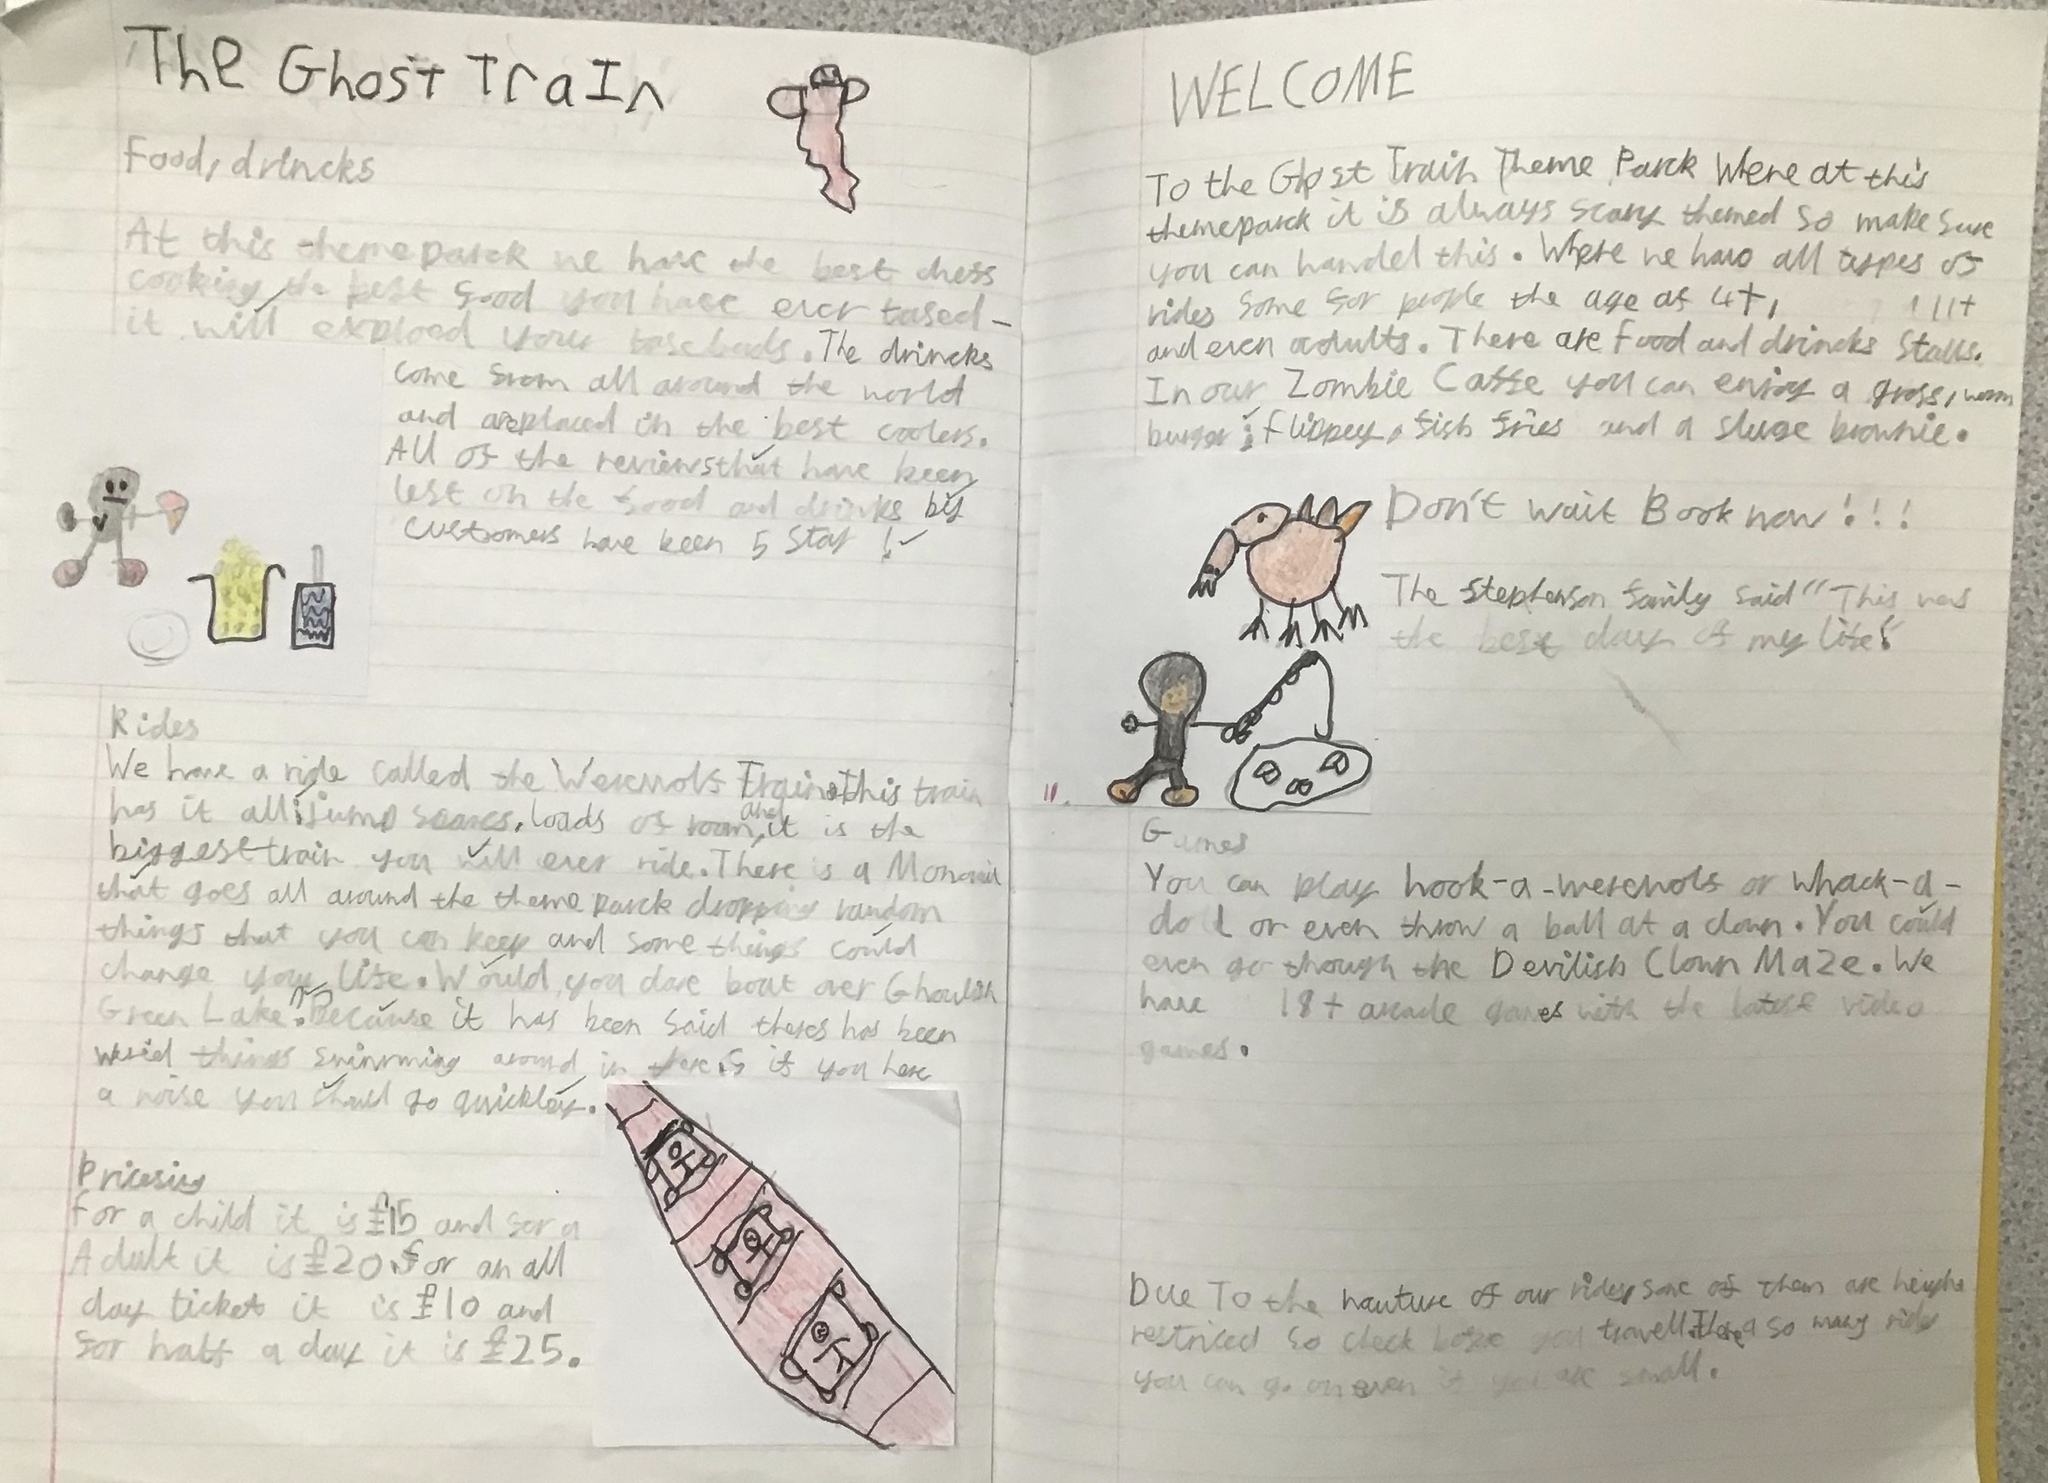 The Ghost Train
Food, drincks
At this themeparck we have the best chess
cooking the best food you have ever tased-
it will expload your tasebads. The drincks
come from all around the world
and are placed in the best coolers.
All of the reviews that have been
left on the food and drinks by
customers have been 5 star !
Rides
We have a ride called the Werewolf Train. This train
has it all: jump scares, loads of room and it is the
biggest train you will ever ride. There is a Monorail
that goes all around the themeparck dropping random
things that you can keep and some things could
change your life. Would you dare boat over Ghoulish
Green Lake? Because it has been said theres has been
weried things swimming around in there if you here
a noise you should go quickley.
Pricesing
For a child it is £15 and for a
Adult it is £20. For an all
day ticket it is £10 and
for half a day it is £25.
WELCOME
To the Ghost Train Theme Parck Where at this
themeparck it is always scary themed so make sure
you can handel this. Where we have all types of
rides some for people the age of 4+, 11+
and even adults. There are Food and drincks Stalls.
In our Zombie Caffe you can enjoy a gross, worm
burger; flippey, fish fries and a sluge brownie.
Don't wait Book now!!!
The Stephenson family said "This was
the best day of my life"
Games
You can play hook-a-werewolf or whack-a-
doll or even throw a ball at a clown. You could
even go though the Devilish Clown Maze. We
have 18+ arcade games with the latest video
games.
Due To the nauture of our rides some of them are height
restriced so check before you travell. There so many rides
you can go on even if you are small.